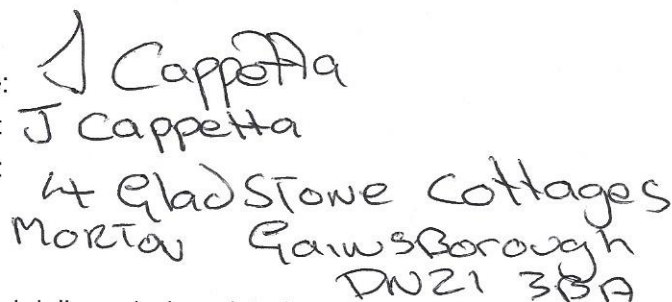 J Cappetta
J Cappetta
4 Gladstone Cottages
Morton Gainsborough
DN21 3BA